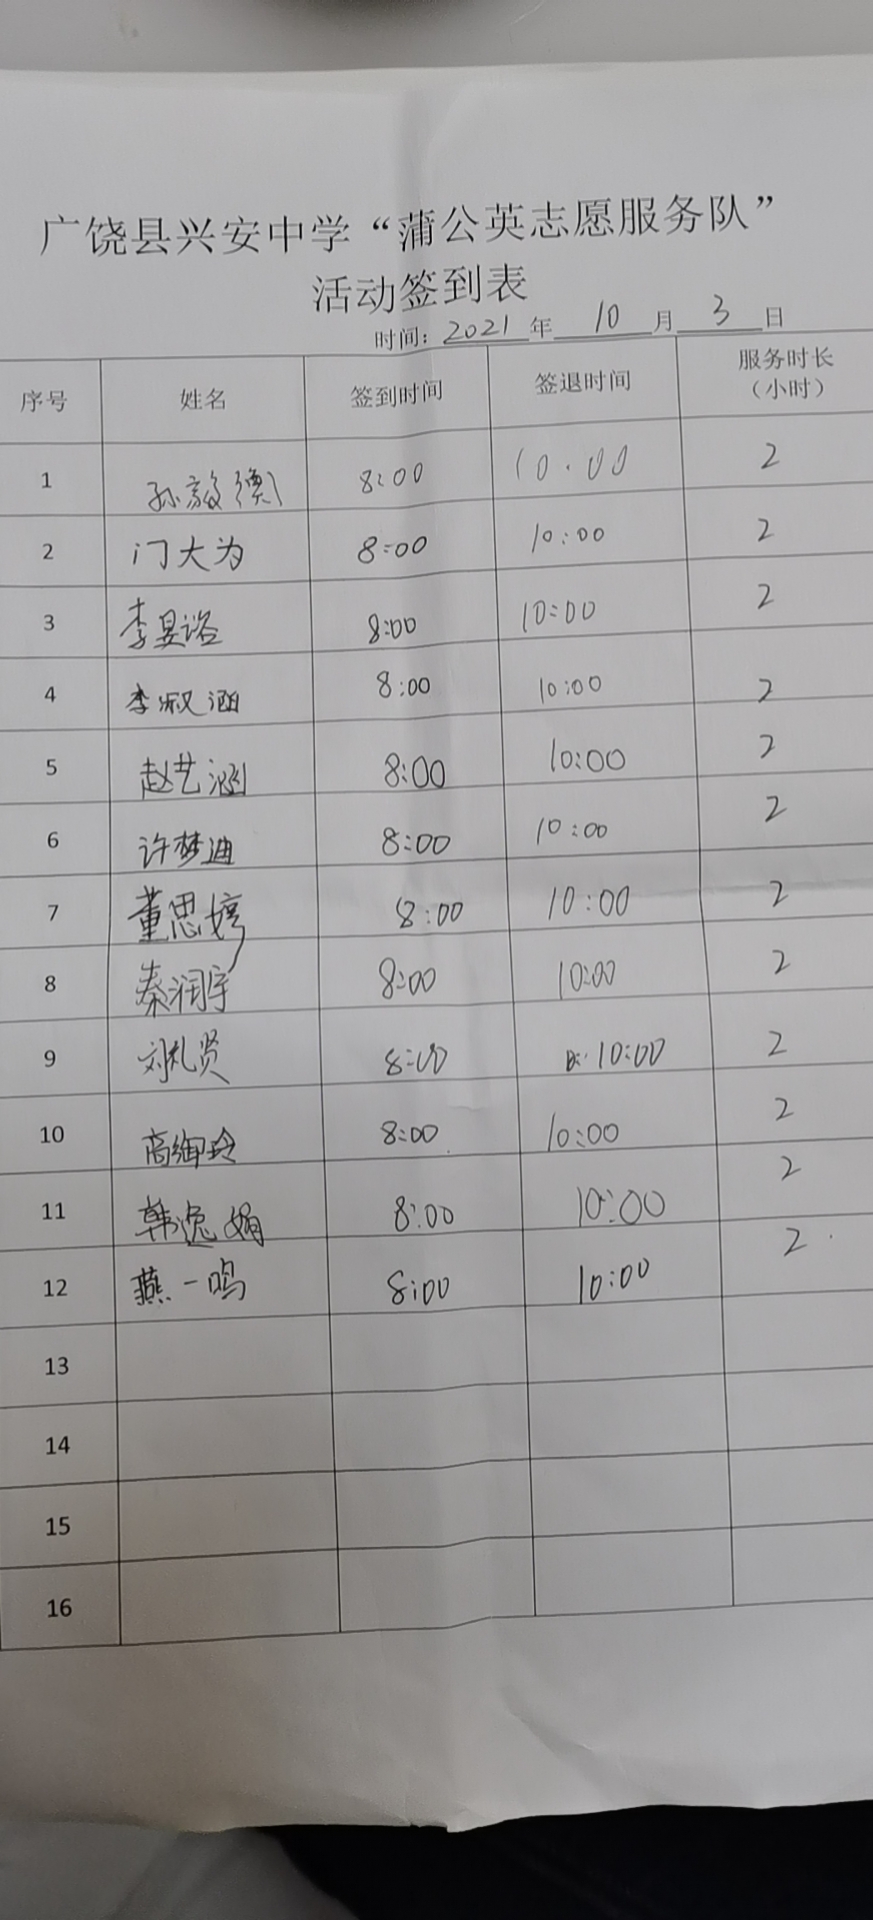 广饶县兴安中学“蒲公英志愿服务队”
活动签到表
时间：2021年 10 月 3 日
序号 姓名 签到时间 签退时间 服务时长（小时）
1 孙毅德 8:00 10:00 2
2 门大为 8:00 10:00 2
3 李昱谘 8:00 10:00 2
4 李淑涵 8:00 10:00 2
5 赵艺涵 8:00 10:00 2
6 许梦迪 8:00 10:00 2
7 董思婷 8:00 10:00 2
8 秦润宇 8:00 10:00 2
9 刘礼贤 8:00 10:00 2
10 高绚玲 8:00 10:00 2
11 韩逸娟 8:00 10:00 2
12 燕一鸣 8:00 10:00 2
13
14
15
16